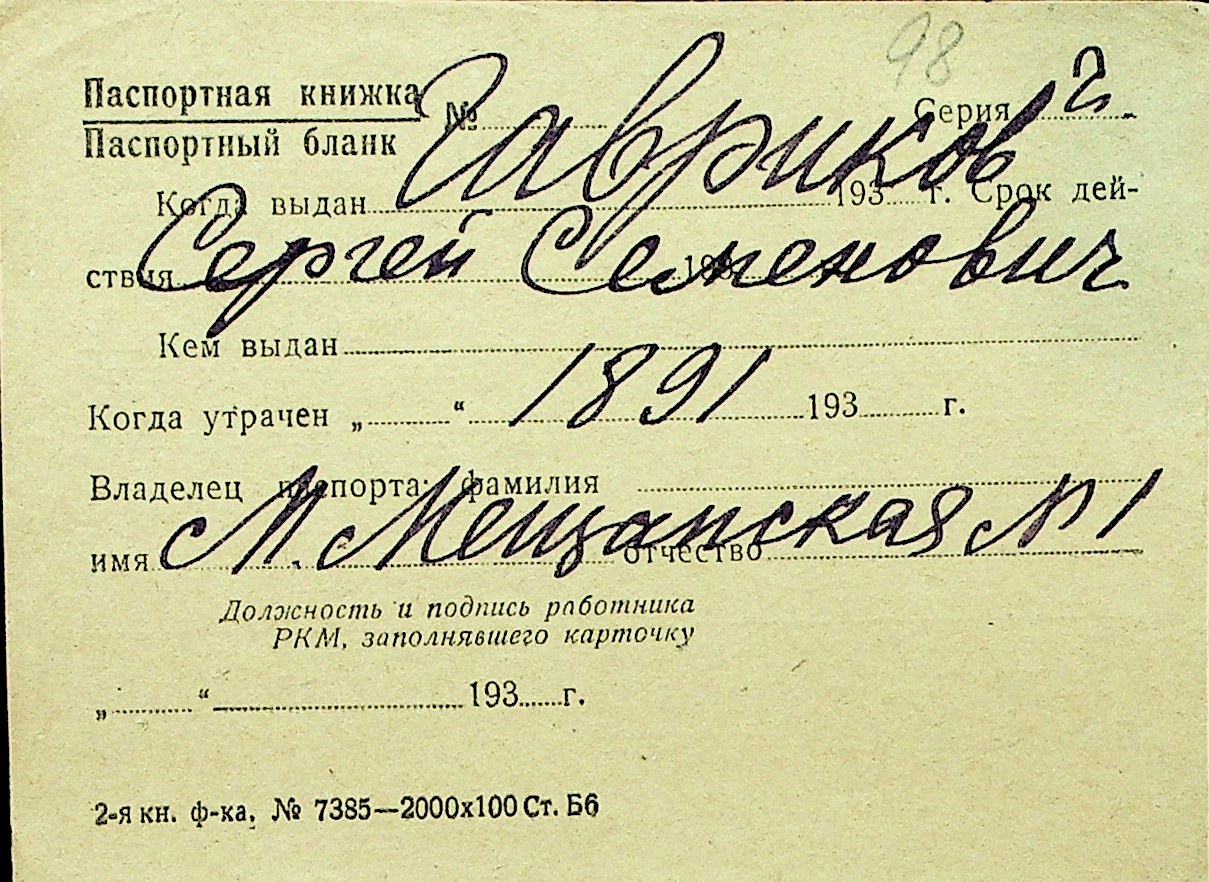 98
Паспортная книжка
Паспортный бланк
№ Серия
Гавриков
Когда выдан 193 г. Срок дей-
ствия 193
Сергей Семенович
Кем выдан
Когда утрачен „ “ 193 г.
1891
Владелец паспорта: фамилия
имя отчество
М. Мещанская № 1
Должность и подпись работника
РКМ, заполнявшего карточку
„ “ 193 г.
2-я кн. ф-ка. № 7385—2000х100 Ст. Б6